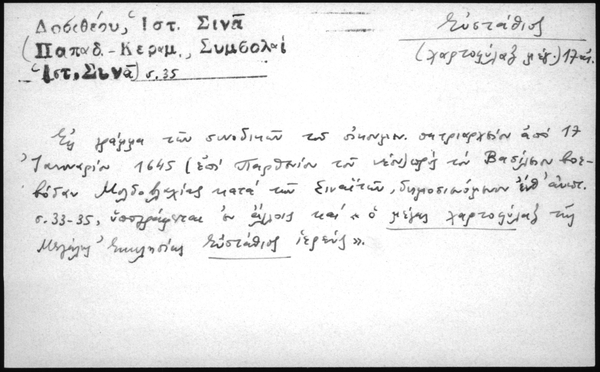 Δοσιθέου, Ἱστ. Σινᾶ
(Παπαδ.-Κεραμ., Συμβολαί
Ἱστ. Σινᾶ) σ. 35
Εὐστάθιος
(χαρτοφύλαξ μέγ.) 17 αἰ.
Εἰς γράμμα τῶν συνοδικῶν τοῦ οἰκουμεν. πατριαρχείου ἀπό 17
Ἰανουαρίου 1645 (ἐπί Παρθενίου τοῦ νέου) πρός τόν Βασίλειον βοε-
βόδαν Μολδοβλαχίας κατά τῶν Σιναϊτῶν, δημοσιευόμενον ἔνθ' ἀνωτ.
σ. 33-35, ὑπογράφεται ἐν ἄλλοις καί «ὁ μέγας χαρτοφύλαξ τῆς
Μεγάλης Ἐκκλησίας Εὐστάθιος ἱερεύς».